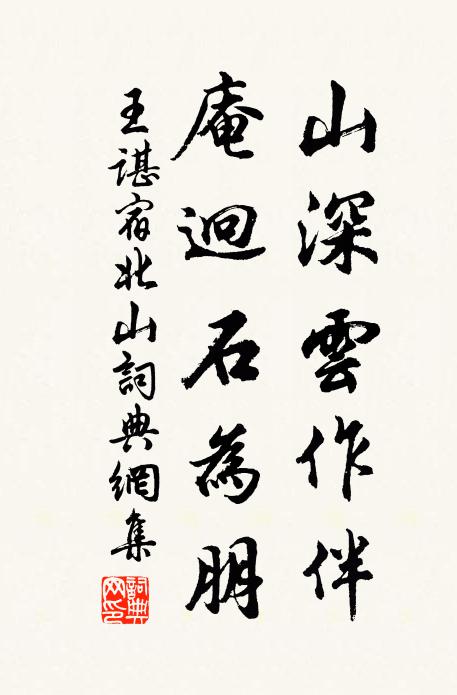 山深雲作伴
庵迥石為朋
王諶宿北山詞典網集
詞典網印